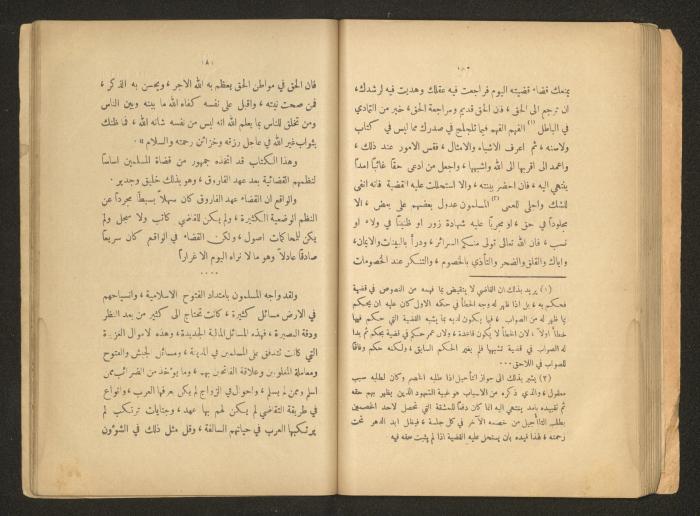 يمنعك قضاء قضيته اليوم فراجعت فيه عقلك وهديت فيه لرشدك،
ان ترجع الى الحق، فان الحق قديم ومراجعة الحق، خير من التمادي
في الباطل (١) الفهم الفهم فيما تلجلج في صدرك مما ليس في كتاب
ولا سنه، ثم اعرف الاشباه والامثال، فقس الامور عند ذلك،
واعمد الى اقربها الى الله واشبهها، واجعل من ادعى حقاً غائباً امداً
ينتهي اليه، فان احضر بينته، والا استحللت عليه القضية فانه انفى
للشك واجلى للعمى (٢) المسلمون عدول بعضهم على بعض، الا
مجلوداً في حق، او مجرباً عليه شهادة زور او ظنيناً في ولاء او
نسب، فان الله تعالى تولى منكم السرائر، ودرأ بالبينات والايمان،
واياك والقلق والضجر والتأذي بالخصوم، والتنكر عند الخصومات
(١) يريد بذلك ان القاضي لا يتقيض بما فهمه من النصوص في قضية
فحكم به، بل اذا ظهر له وجه الخطأ في حكمه الاول كان عليه ان يحكم
بما ظهر له من الصواب، فيما يكون لديه بما يشبه القضية التي حكم فيها
خطأ اولاً، لان الخطأ لا يكون قاعدة، ولان عمر حكم في قضية بحكم ثم بدا
له الصواب في قضية تشبهها فلم يغير الحكم السابق، ولكنه حكم وفاقاً
للصواب في اللاحق...
(٢) يشير بذلك الى جواز التأجيل اذا طلبه الخصم وكان لطلبه سبب
معقول، والذي ذكره من الاسباب هو غيبة الشهود الذين يظهر بهم حقه
ثم تقييده بأمد ينتهي اليه انما كان دفعاً للمشقة التي تحصل لاحد الخصمين
بطلب التأجيل من خصمه الآخر في كل جلسة، فيظل ابد الدهر تحت
رحمته، لهذا قيده بان يستحل عليه القضية اذا لم يثبت حقه فيه
٨١
فان الحق في مواطن الحق يعظم به الله الاجر، ويحسن به الذكر،
فمن صحت نيته، واقبل على نفسه كفاه الله ما بينه وبين الناس
ومن تخلق للناس بما يعلم الله انه ليس من نفسه شانه الله، فما ظنك
بثواب غير الله في عاجل رزقه وخزائن رحمته والسلام».
وهذا الكتاب قد اتخذه جمهور من قضاة المسلمين اساساً
لنظمهم القضائية بعد عهد الفاروق، وهو بذلك خليق وجدير.
والواقع ان القضاء عهد الفاروق كان سهلاً بسيطاً مجرداً عن
النظم الوضعية الكثيرة، ولم يكن للقاضي كاتب ولا سجل ولم
يكن للمحاكمات اصول، ولكن القضاء في الواقع كان سريعاً
صادقاً عادلاً وهو ما لا نراه اليوم الا غرارا
....
ولقد واجه المسلمون بامتداد الفتوح الاسلامية، وانسياحهم
في الارض مسائل كثيرة، كانت تحتاج الى كثير من بعد النظر
ودقة البصيرة، فهذه المسائل المالية الجديدة، وهذه الاموال الغزيرة
التي كانت تتدفق على المسلمين في المدينة، ومسائل الجيش والفتوح
ومعاملة المغلوبين وعلاقة الفاتحين بهم، وما يؤخذ من الضرائب ممن
اسلم وممن لم يسلم، واحوال في الزواج لم يكن يعرفها العرب، وانواع
في طريقة التقاضي لم يكن لهم بها عهد، وجنايات ترتكب لم
يرتكبها العرب في حياتهم السالفة، وقل مثل ذلك في الشؤون